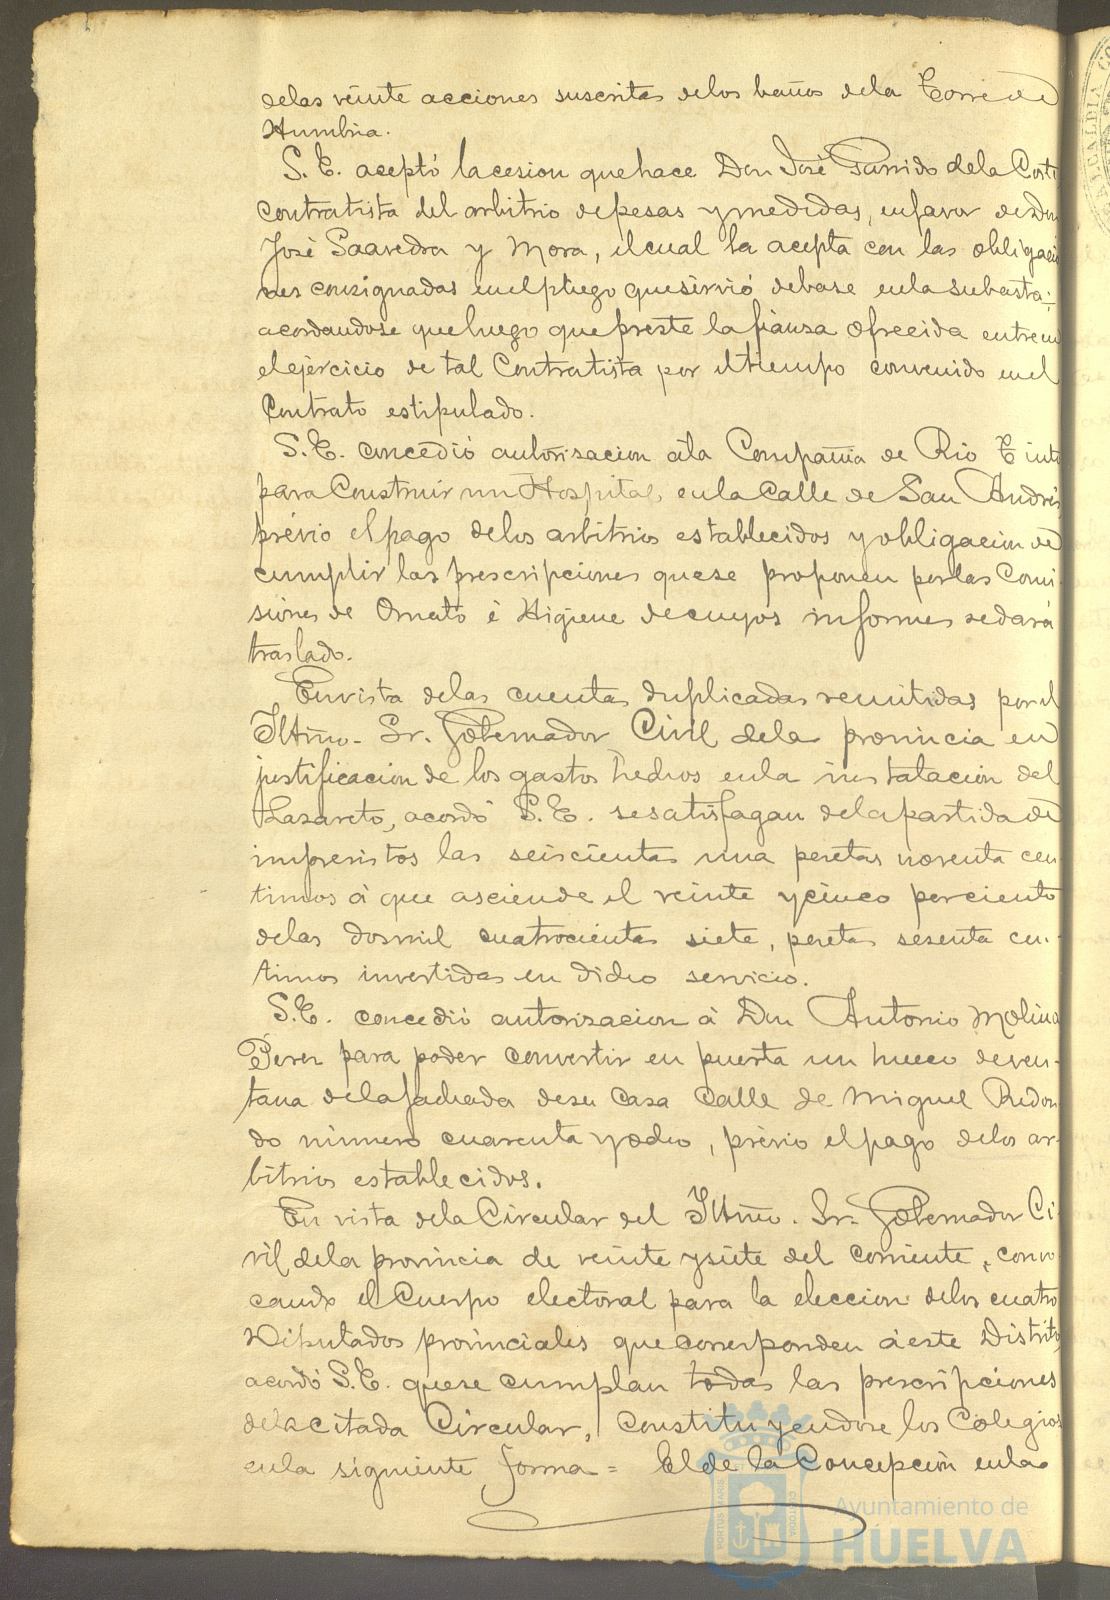 delas veinte acciones suscritas delos baños dela Torre de
Humbria.
S. E. aceptó la cesion que hace Don José Garrido dela Corte
contratista del arbitrio depesas y medidas, enfavor dedon
José Saavedra y Mora, elcual la acepta con las obligacio
nes consignadas enelpliego que sirvió debase enla subasta;
acordandose que luego que preste la fianza ofrecida entre en
el ejercicio de tal Contratista por el tiempo convenido en el
Contrato estipulado.
S. E. concedió autorisacion ála Compañia de Rio Tinto
para Construir un Hospital, enla Calle de San Andrés
prévio el pago delos arbitrios establecidos y obligacion de
cumplir las prescripciones que se proponen por las Comi-
siones de Ornato é Higiene decuyos informes sedará
traslado.
En vista delas cuentas duplicadas remitidas por el
Iltmo. Sr. Gobernador Civil dela provincia en
justificacion de los gastos hechos enla instalacion del
Lazareto, acordó S. E. se satisfagan dela partida de
imprevistos las seiscientas una pesetas noventa cen-
timos á que asciende el veinte y cinco por ciento
delas dosmil cuatrocientas siete, pesetas sesenta cen-
timos invertidas en dicho servicio.
S. E. concedió autorisacion á Don Antonio Molina
Perez para poder convertir en puerta un hueco de ven-
tana dela fachada desu Casa Calle de Miguel Redon
do número cuarenta y ocho, prévio el pago delos ar-
bitrios establecidos.
En vista dela Circular del Iltmo. Sr. Gobernador Ci
vil dela provincia de veinte y siete del corriente, convo
cando el Cuerpo electoral para la eleccion delos cuatro
Diputados provinciales que corresponden áeste Distrito,
acordó S. E. que se cumplan todas las prescripciones
dela citada Circular, constituyendose los Colegios
enla siguiente forma = El de la Concepcion enla
PORTUS MARIS
CUSTODIA
Ayuntamiento de
HUELVA
ALCALDIA CO